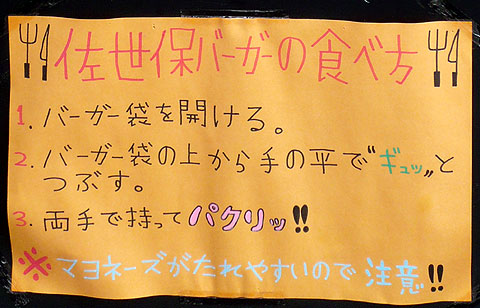 佐世保バーガーの食べ方
1. バーガー袋を開ける。
2. バーガー袋の上から手の平で〝ギュッ〟と
つぶす。
3. 両手で持ってパクリッ!!
※マヨネーズがたれやすいので注意!!